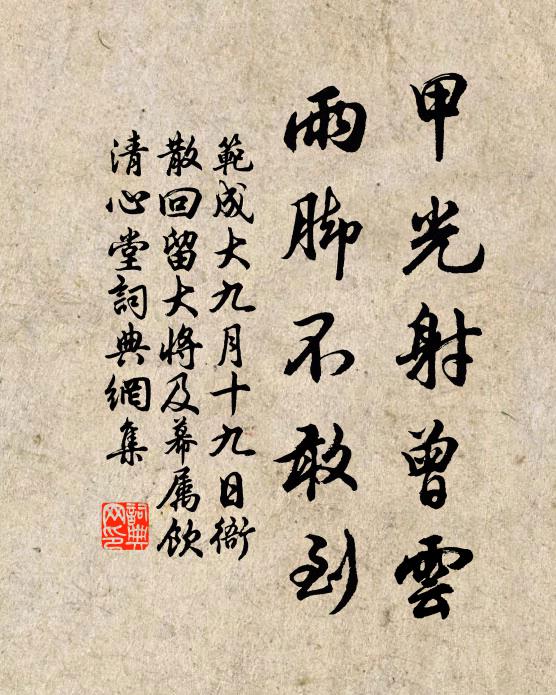 甲光射曾雲
雨脚不敢到
範成大九月十九日衙
散回留大將及幕属飲
清心堂詞典網集
詞典
网印